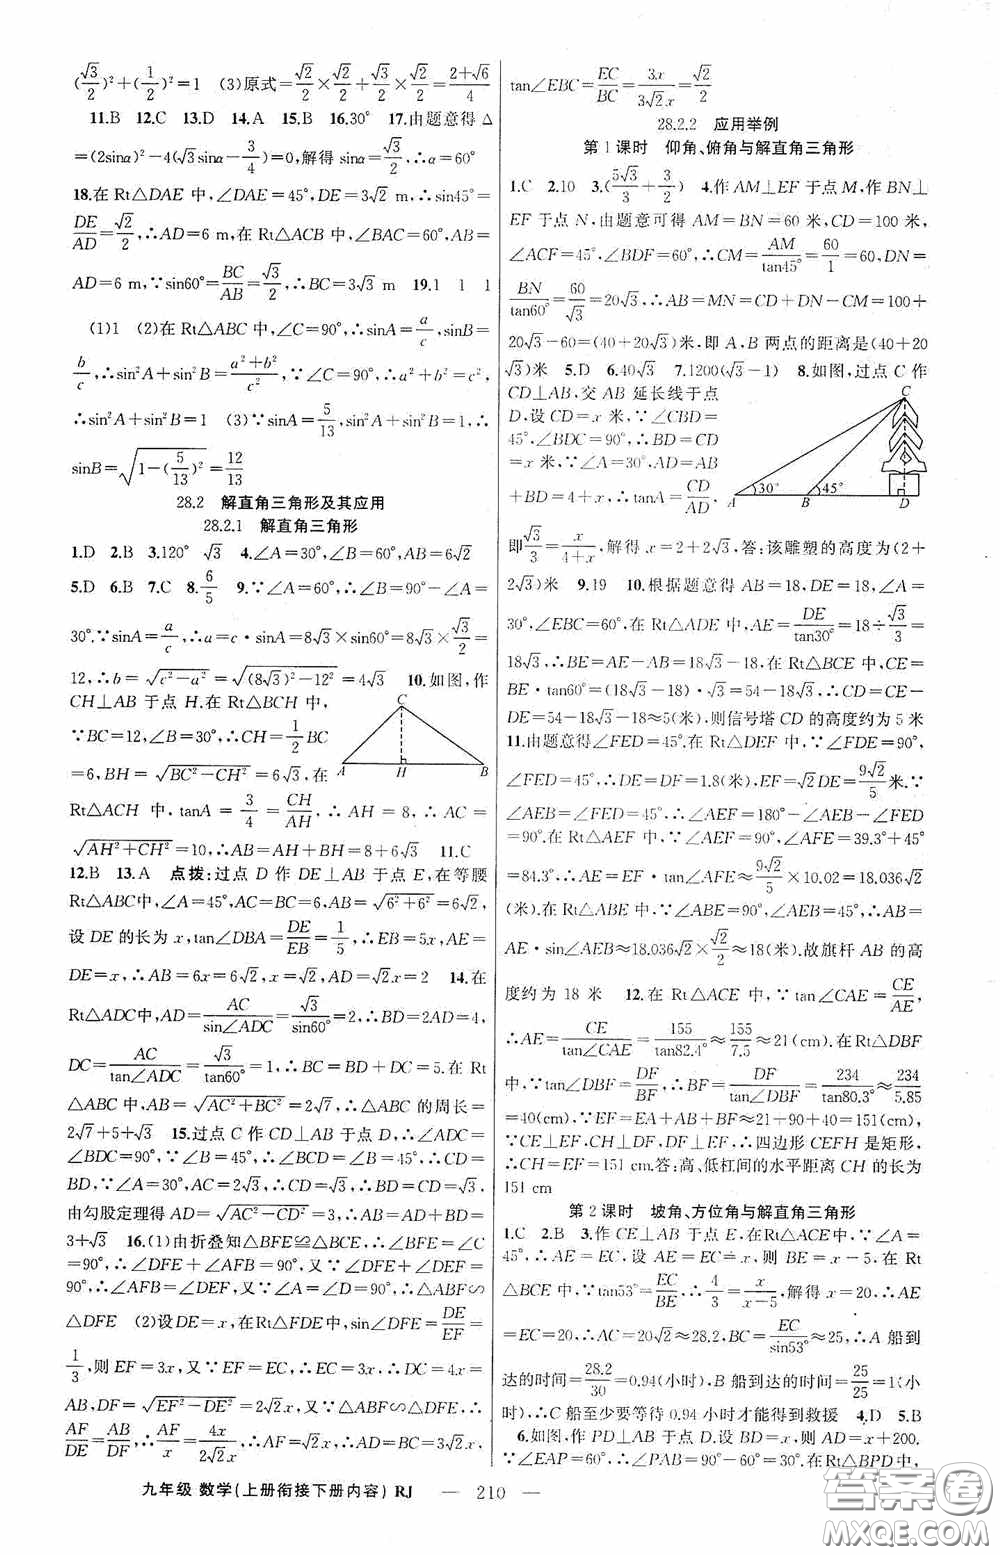 (√3/2)²+(1/2)²=1　(3)原式=√2/2×√2/2+√3/2×√2/2=(2+√6)/4
11.B　12.C　13.D　14.A　15.B　16.30°　17.由题意得 Δ
=(2sinα)²-4(√3sinα-3/4)=0,解得 sinα=√3/2,∴α=60°
18.在 Rt△DAE 中,∠DAE=45°,DE=3√2 m,∴sin45°=
DE/AD=√2/2,∴AD=6 m,在 Rt△ACB 中,∠BAC=60°,AB=
AD=6 m,∵sin60°=BC/AB=√3/2,∴BC=3√3 m　19.1　1　1
(1)1　(2)在 Rt△ABC 中,∠C=90°,∴sinA=a/c,sinB=
b/c,∴sin²A+sin²B=(a²+b²)/c²,∵∠C=90°,∴a²+b²=c²,
∴sin²A+sin²B=1　(3)∵sinA=5/13,sin²A+sin²B=1,∴
sinB=√(1-(5/13)²)=12/13
28.2　解直角三角形及其应用
28.2.1　解直角三角形
1.D　2.B　3.120°　√3　4.∠A=30°,∠B=60°,AB=6√2
5.D　6.B　7.C　8.6/5　9.∵∠A=60°,∴∠B=90°-∠A=
30°.∵sinA=a/c,∴a=c·sinA=8√3×sin60°=8√3×√3/2=
12,∴b=√(c²-a²)=√((8√3)²-12²)=4√3　10.如图,作
CH⊥AB 于点 H.在 Rt△BCH 中,
∵BC=12,∠B=30°,∴CH=1/2BC
=6,BH=√(BC²-CH²)=6√3,在
Rt△ACH 中,tanA=3/4=CH/AH,∴AH=8,∴AC=
√(AH²+CH²)=10,∴AB=AH+BH=8+6√3　11.C
C
A　H　B
12.B　13.A　点拨:过点 D 作 DE⊥AB 于点 E,在等腰
Rt△ABC中,∠A=45°,AC=BC=6,AB=√(6²+6²)=6√2,
设 DE 的长为 x,tan∠DBA=DE/EB=1/5,∴EB=5x,AE=
DE=x,∴AB=6x=6√2,x=√2,AD=√2x=2　14.在
Rt△ADC中,AD=AC/sin∠ADC=√3/sin60°=2,∴BD=2AD=4,
DC=AC/tan∠ADC=√3/tan60°=1,∴BC=BD+DC=5.在 Rt
△ABC 中,AB=√(AC²+BC²)=2√7,∴△ABC 的周长=
2√7+5+√3　15.过点 C 作 CD⊥AB 于点 D,∴∠ADC=
∠BDC=90°,∵∠B=45°,∴∠BCD=∠B=45°,∴CD=
BD,∵∠A=30°,AC=2√3,∴CD=√3,∴BD=CD=√3,
由勾股定理得 AD=√(AC²-CD²)=3,∴AB=AD+BD=
3+√3　16.(1)由折叠知△BFE≌△BCE,∴∠BFE=∠C
=90°,∴∠DFE+∠AFB=90°,又∵∠DFE+∠DEF=
90°,∴∠AFB=∠DEF,又∵∠A=∠D=90°,∴△ABF∽
△DFE　(2)设DE=x,在Rt△FDE中,sin∠DFE=DE/EF=
1/3,则 EF=3x,又∵EF=EC,∴EC=3x.∴DC=4x=
AB,DF=√(EF²-DE²)=2√2x,又∵△ABF∽△DFE,∴
AF/DE=AB/DF,∴AF/x=4x/(2√2x),∴AF=√2x,∴AD=BC=3√2x,
tan∠EBC=EC/BC=3x/(3√2x)=√2/2
28.2.2　应用举例
第 1 课时　仰角、俯角与解直角三角形
1.C　2.10　3.(5√3/3+3/2)　4.作 AM⊥EF 于点 M,作 BN⊥
EF 于点 N,由题意可得 AM=BN=60 米,CD=100 米,
∠ACF=45°,∠BDF=60°,∴CM=AM/tan45°=60/1=60,DN=
BN/tan60°=60/√3=20√3,∴AB=MN=CD+DN-CM=100+
20√3-60=(40+20√3)米,即 A,B 两点的距离是(40+20
√3)米　5.D　6.40√3　7.1200(√3-1)　8.如图,过点 C 作
CD⊥AB,交 AB 延长线于点
D,设 CD=x 米,∵∠CBD=
45°,∠BDC=90°,∴BD=CD
=x 米,∵∠A=30°,AD=AB
+BD=4+x,∴tanA=CD/AD,
C
30°　45°
A　B　D
即√3/3=x/(4+x),解得 x=2+2√3,答:该雕塑的高度为(2+
2√3)米　9.19　10.根据题意得 AB=18,DE=18,∠A=
30°,∠EBC=60°,在 Rt△ADE 中,AE=DE/tan30°=18÷√3/3=
18√3,∴BE=AE-AB=18√3-18,在 Rt△BCE 中,CE=
BE·tan60°=(18√3-18)·√3=54-18√3,∴CD=CE-
DE=54-18√3-18≈5(米),则信号塔 CD 的高度约为 5 米
11.由题意得∠FED=45°.在 Rt△DEF 中,∵∠FDE=90°,
∠FED=45°,∴DE=DF=1.8(米),EF=√2DE=9√2/5米.∵
∠AEB=∠FED=45°,∴∠AEF=180°-∠AEB-∠FED
=90°.在 Rt△AEF 中,∵∠AEF=90°,∠AFE=39.3°+45°
=84.3°,∴AE=EF·tan∠AFE≈9√2/5×10.02=18.036√2
(米).在 Rt△ABE 中,∵∠ABE=90°,∠AEB=45°,∴AB=
AE·sin∠AEB≈18.036√2×√2/2≈18(米).故旗杆 AB 的高
度约为 18 米　12.在 Rt△ACE 中,∵tan∠CAE=CE/AE,
∴AE=CE/tan∠CAE=155/tan82.4°≈155/7.5≈21(cm).在Rt△DBF
中,∵tan∠DBF=DF/BF,∴BF=DF/tan∠DBF=234/tan80.3°≈234/5.85
=40(cm),∵EF=EA+AB+BF≈21+90+40=151(cm),
∵CE⊥EF,CH⊥DF,DF⊥EF,∴四边形 CEFH 是矩形,
∴CH=EF=151 cm.答:高、低杠间的水平距离 CH 的长为
151 cm
第 2 课时　坡角、方位角与解直角三角形
1.C　2.B　3.作 CE⊥AB 于点 E,在Rt△ACE中,∵∠A=
45°,∴AE=EC,设 AE=EC=x,则 BE=x-5,在 Rt
△BCE 中,∵tan53°=EC/BE,∴4/3=x/(x-5),解得 x=20,∴AE
=EC=20,∴AC=20√2≈28.2,BC=EC/sin53°≈25,∴A 船到
达的时间=28.2/30=0.94(小时),B 船到达的时间=25/25=1(小
时),∴C 船至少要等待 0.94 小时才能得到救援　4.D　5.B
6.如图,作 PD⊥AB 于点 D,设 BD=x,则 AD=x+200.
∵∠EAP=60°,∴∠PAB=90°-60°=30°.在 Rt△BPD 中,
九年级 数学(上册衔接下册内容) RJ　— 210 —
答案圈
MXQE.COM